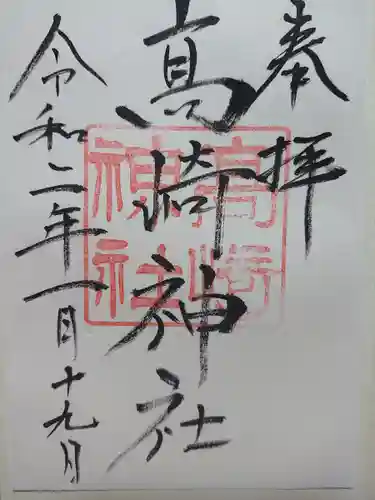 奉拝
高崎神社
令和二年一月十九日
高崎
神社